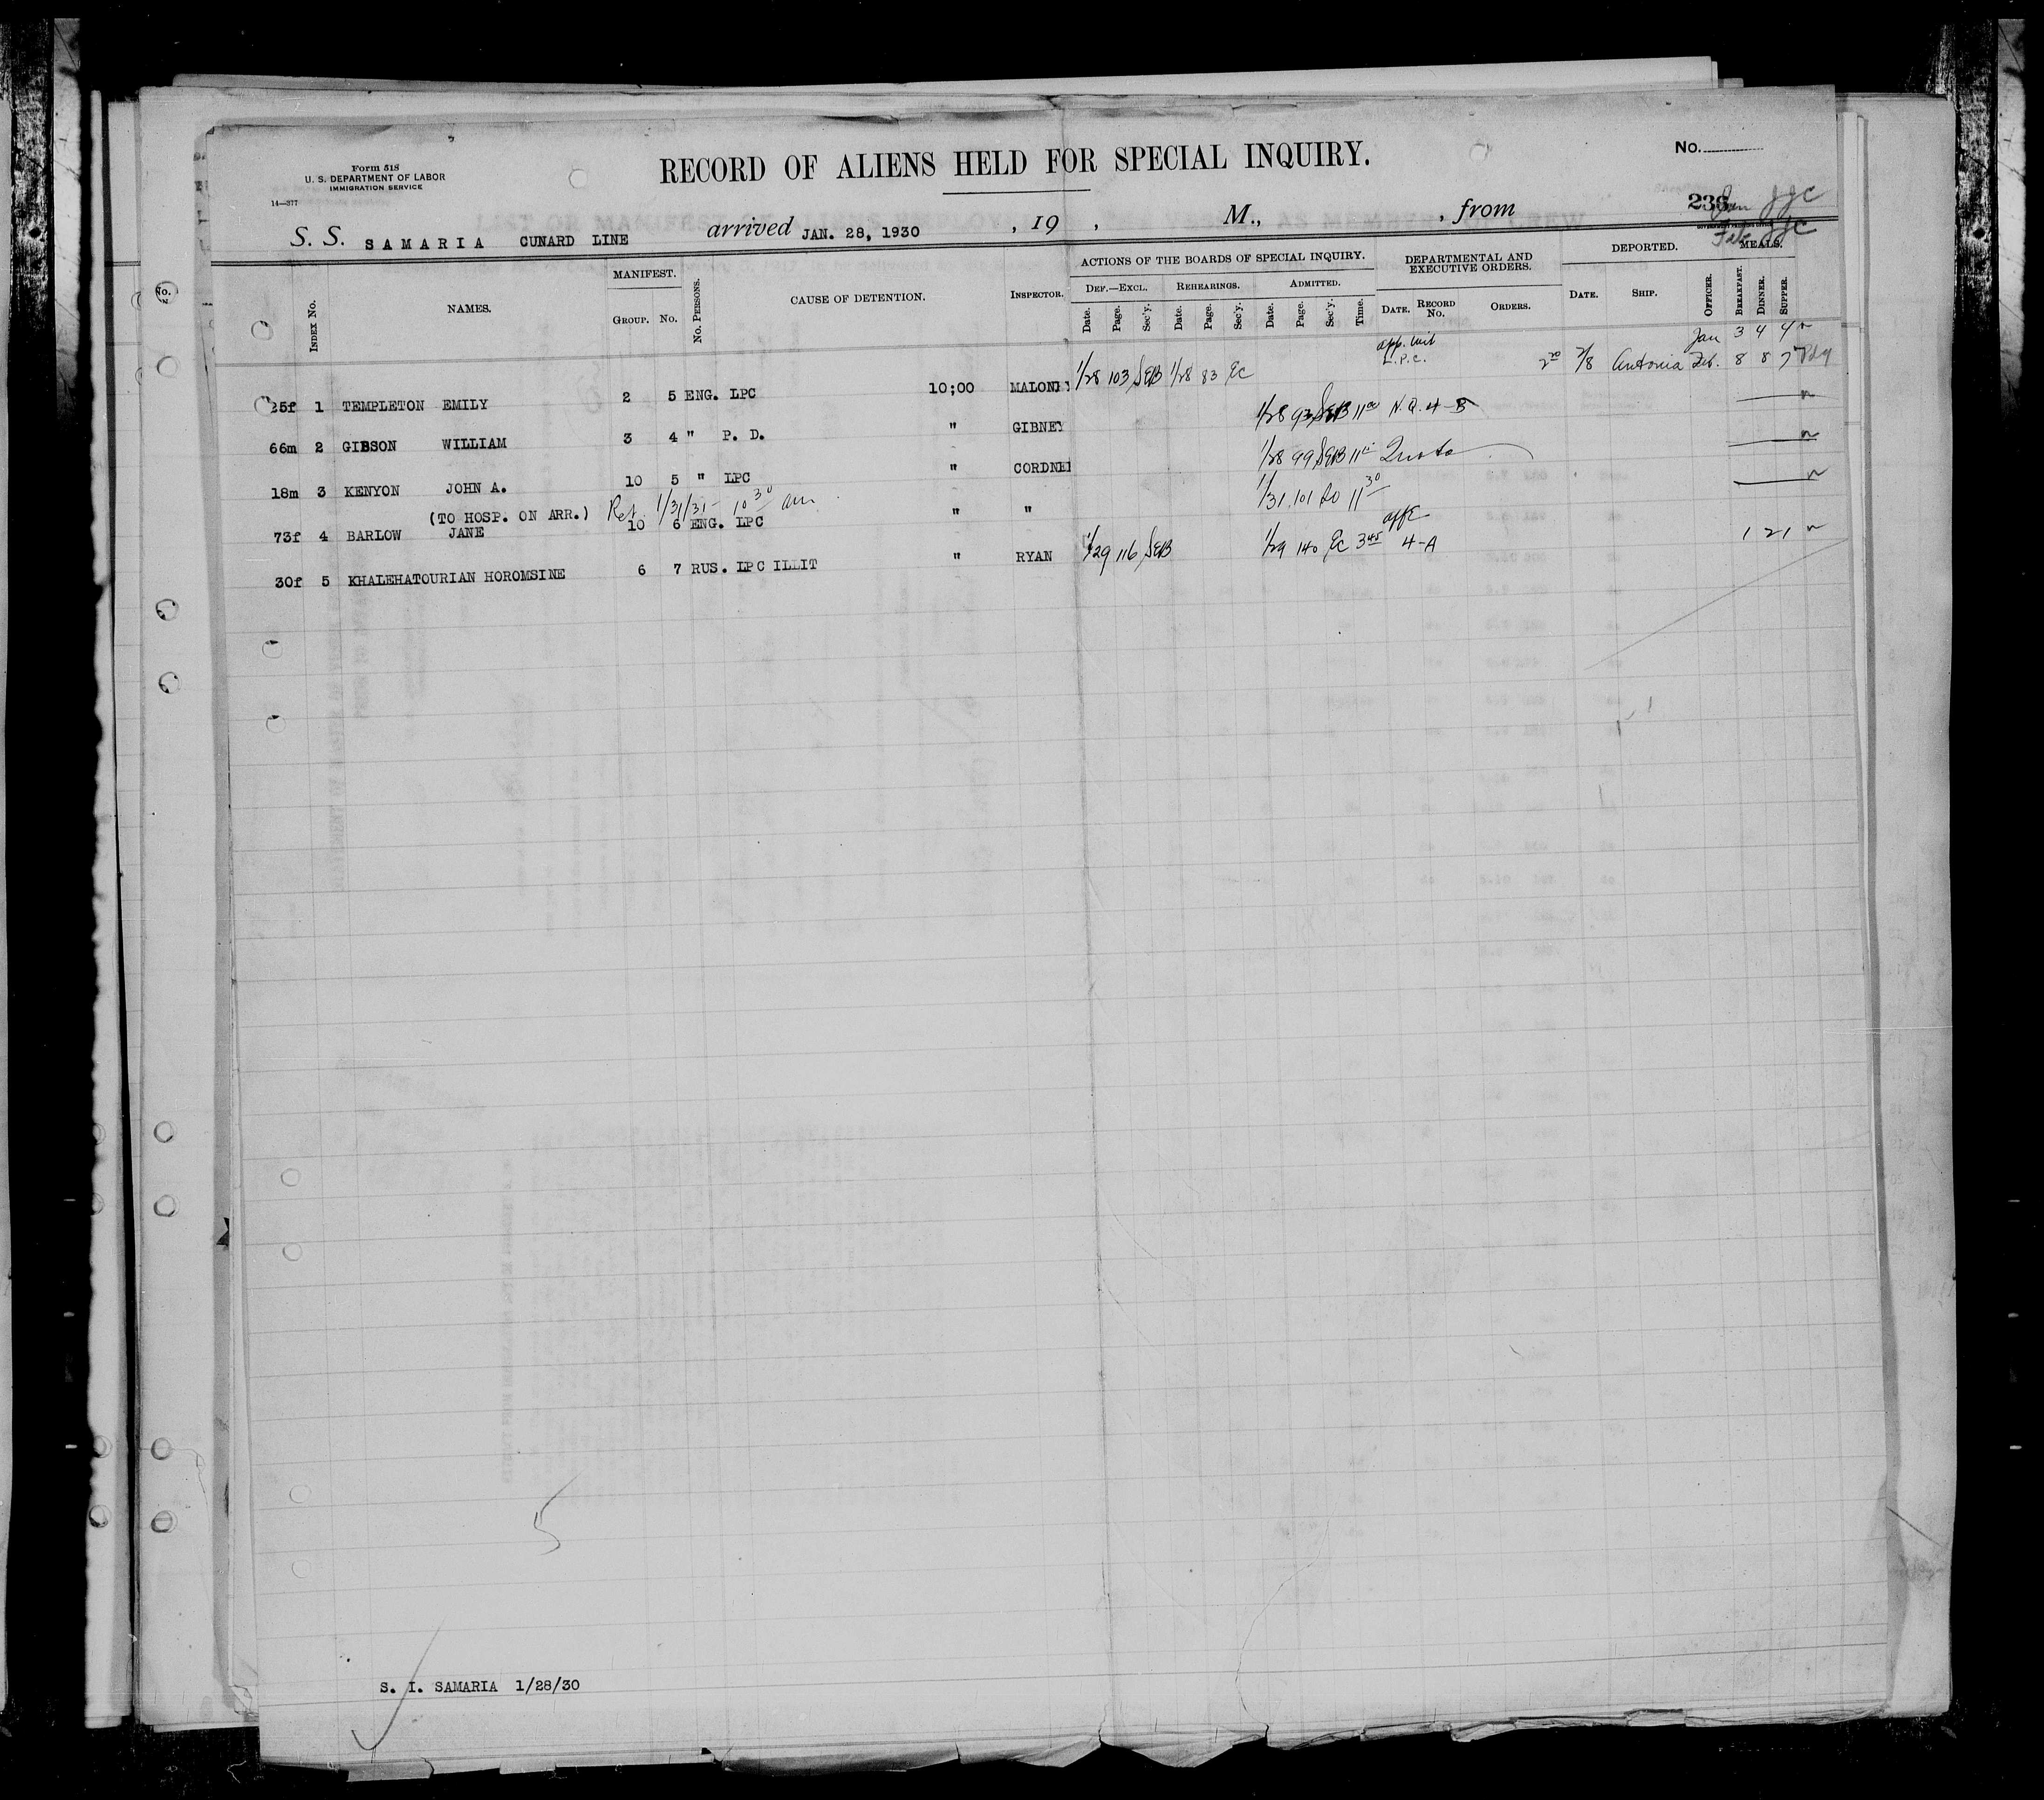 Form 518
U. S. DEPARTMENT OF LABOR
IMMIGRATION SERVICE
14—377
RECORD OF ALIENS HELD FOR SPECIAL INQUIRY.
No.
236
Jan JJC
Feb JJC
S. S. SAMARIA CUNARD LINE arrived JAN. 28, 1930 , 19 , M., , from
INDEX No. NAMES. MANIFEST. GROUP. No. No. PERSONS. CAUSE OF DETENTION. INSPECTOR. ACTIONS OF THE BOARDS OF SPECIAL INQUIRY. DEF.—EXCL. Date. Page. Sec'y. REHEARINGS. Date. Page. Sec'y. ADMITTED. Date. Page. Sec'y. Time. DEPARTMENTAL AND EXECUTIVE ORDERS. DATE. RECORD No. ORDERS. DEPORTED. DATE. SHIP. OFFICER. MEALS. BREAKFAST. DINNER. SUPPER.
Jan 3 4 4
25f 1 TEMPLETON EMILY 2 5 ENG. LPC 10;00 MALONEY 1/28 103 SEB 1/28 83 EC app. L.P.C. 2/8 Antonia Feb. 8 8 7
66m 2 GIBSON WILLIAM 3 4 " P. D. " GIBNEY 1/28 93 SEB 11 00 N.Q. 4-B
18m 3 KENYON JOHN A. 10 5 " LPC " CORDNER 1/28 99 SEB 11 Quota
(TO HOSP. ON ARR.) Ret. 1/31/31 - 10 30 am
73f 4 BARLOW JANE 10 6 ENG. LPC " " 1/31 101 11 30
30f 5 KHALEHATOURIAN HOROMSINE 6 7 RUS. LPC ILLIT " RYAN 1/29 116 SEB 1/29 140 EC 3 45 4-A 1 2 1
5
S. I. SAMARIA 1/28/30